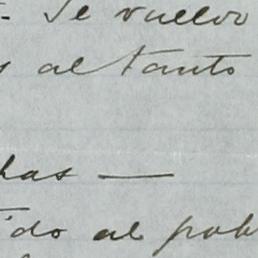 Se vuelvo
al tanto
has —
ido al pob